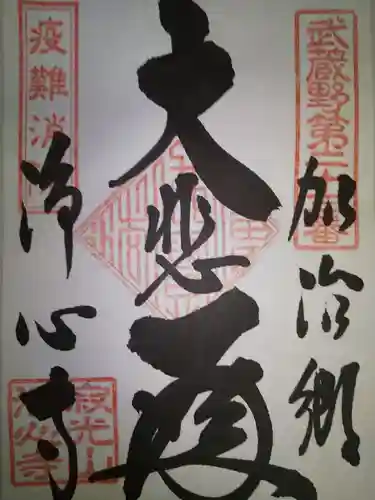 武蔵野第二十番
加治郷
大悲殿
疫難消除
浄心寺
寂光山
浄心寺